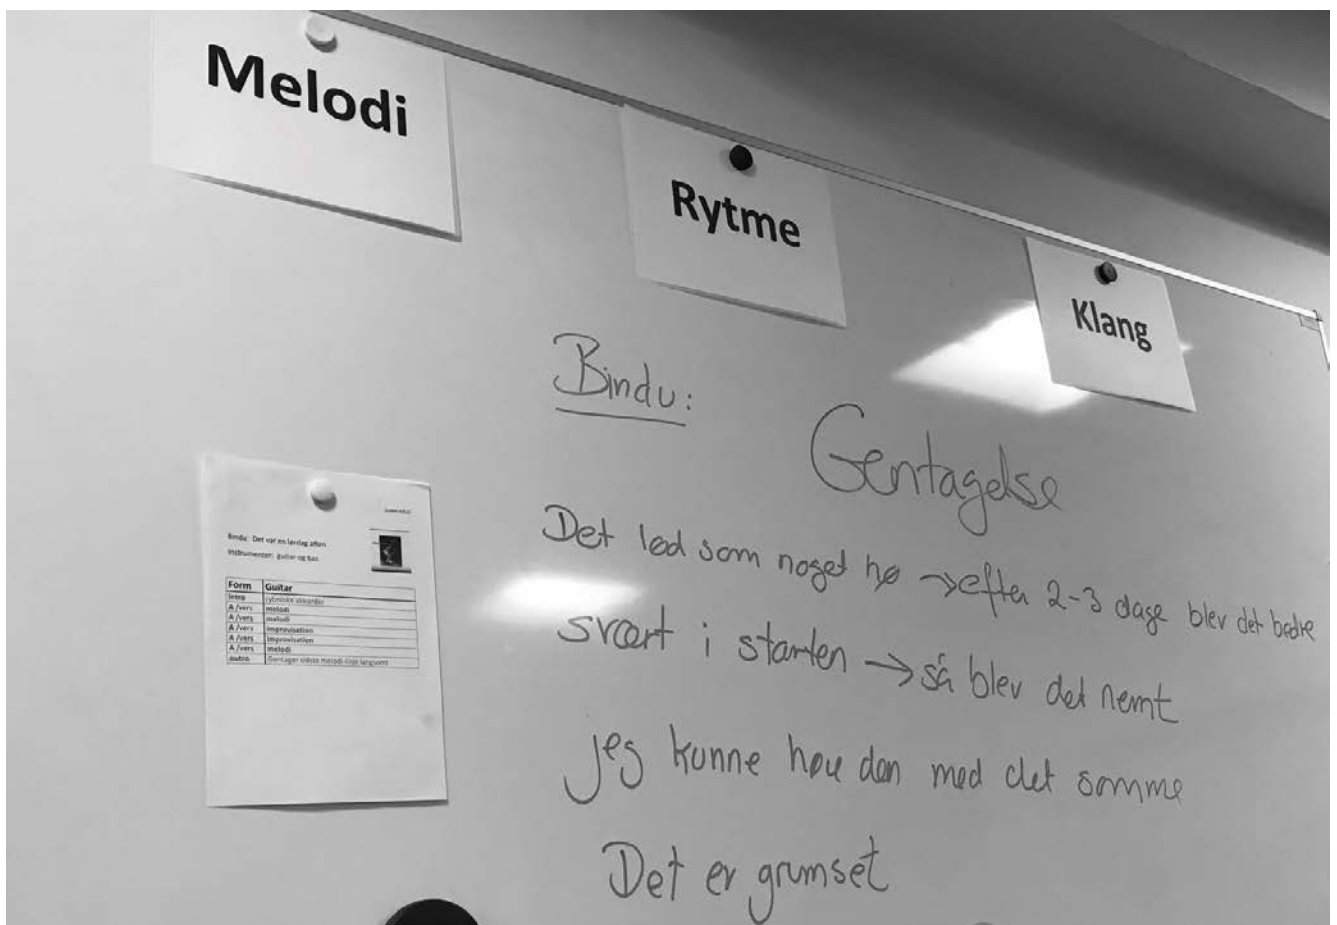 Melodi
Rytme
Klang
Bindu:
Gentagelse
Det lød som noget hø → efter 2-3 dage blev det bedre
svært i starten → så blev det nemt
jeg kunne høre den med det samme
Det er grumset
Bindu: Det var en lørdag aften
Instrumenter: guitar og bas
Form Guitar
Intro rytmiske akkorder
A /vers melodi
A /vers melodi
A /vers improvisation
A /vers improvisation
A /vers melodi
outro Gentager sidste melodi-linje langsomt